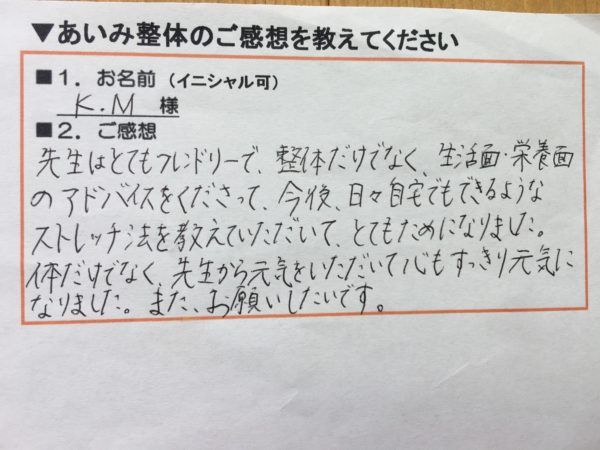 ▼あいみ整体のご感想を教えてください
■1．お名前（イニシャル可）
K.M 様
■2．ご感想
先生はとてもフレンドリーで、整体だけでなく、生活面・栄養面
のアドバイスをくださって、今後、日々自宅でもできるような
ストレッチ法を教えていただいて、とてもためになりました。
体だけでなく、先生から元気をいただいて心もすっきり元気に
なりました。また、お願いしたいです。